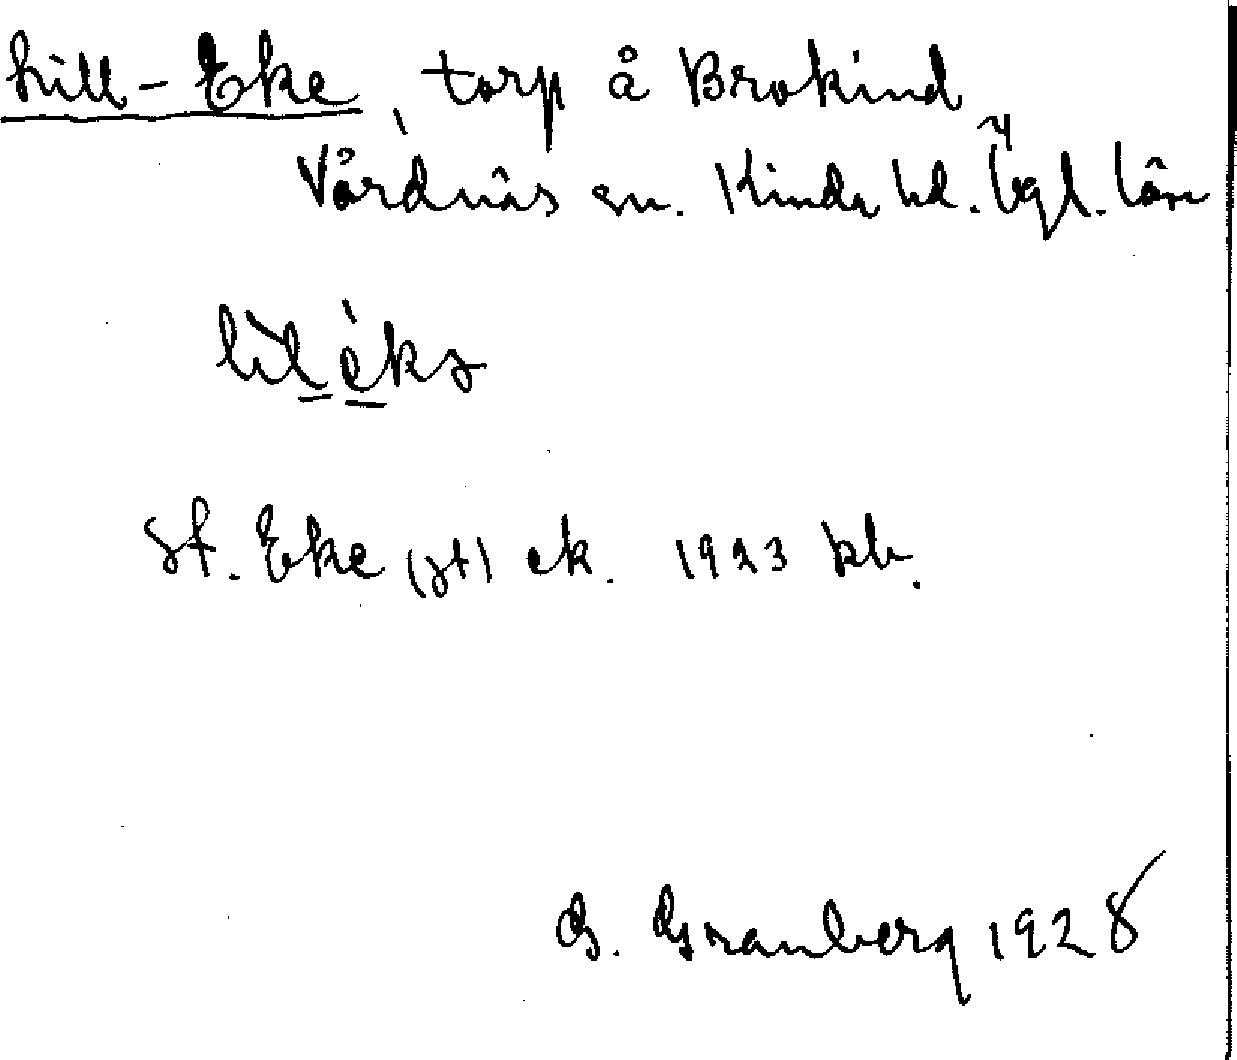 Lill-Eke, torp å Brokind
Vårdnäs sn. Kinda hd. Ögl. län
lil èkə
st. Eke (st) ek. 1923 kb.
G. Granberg 1928